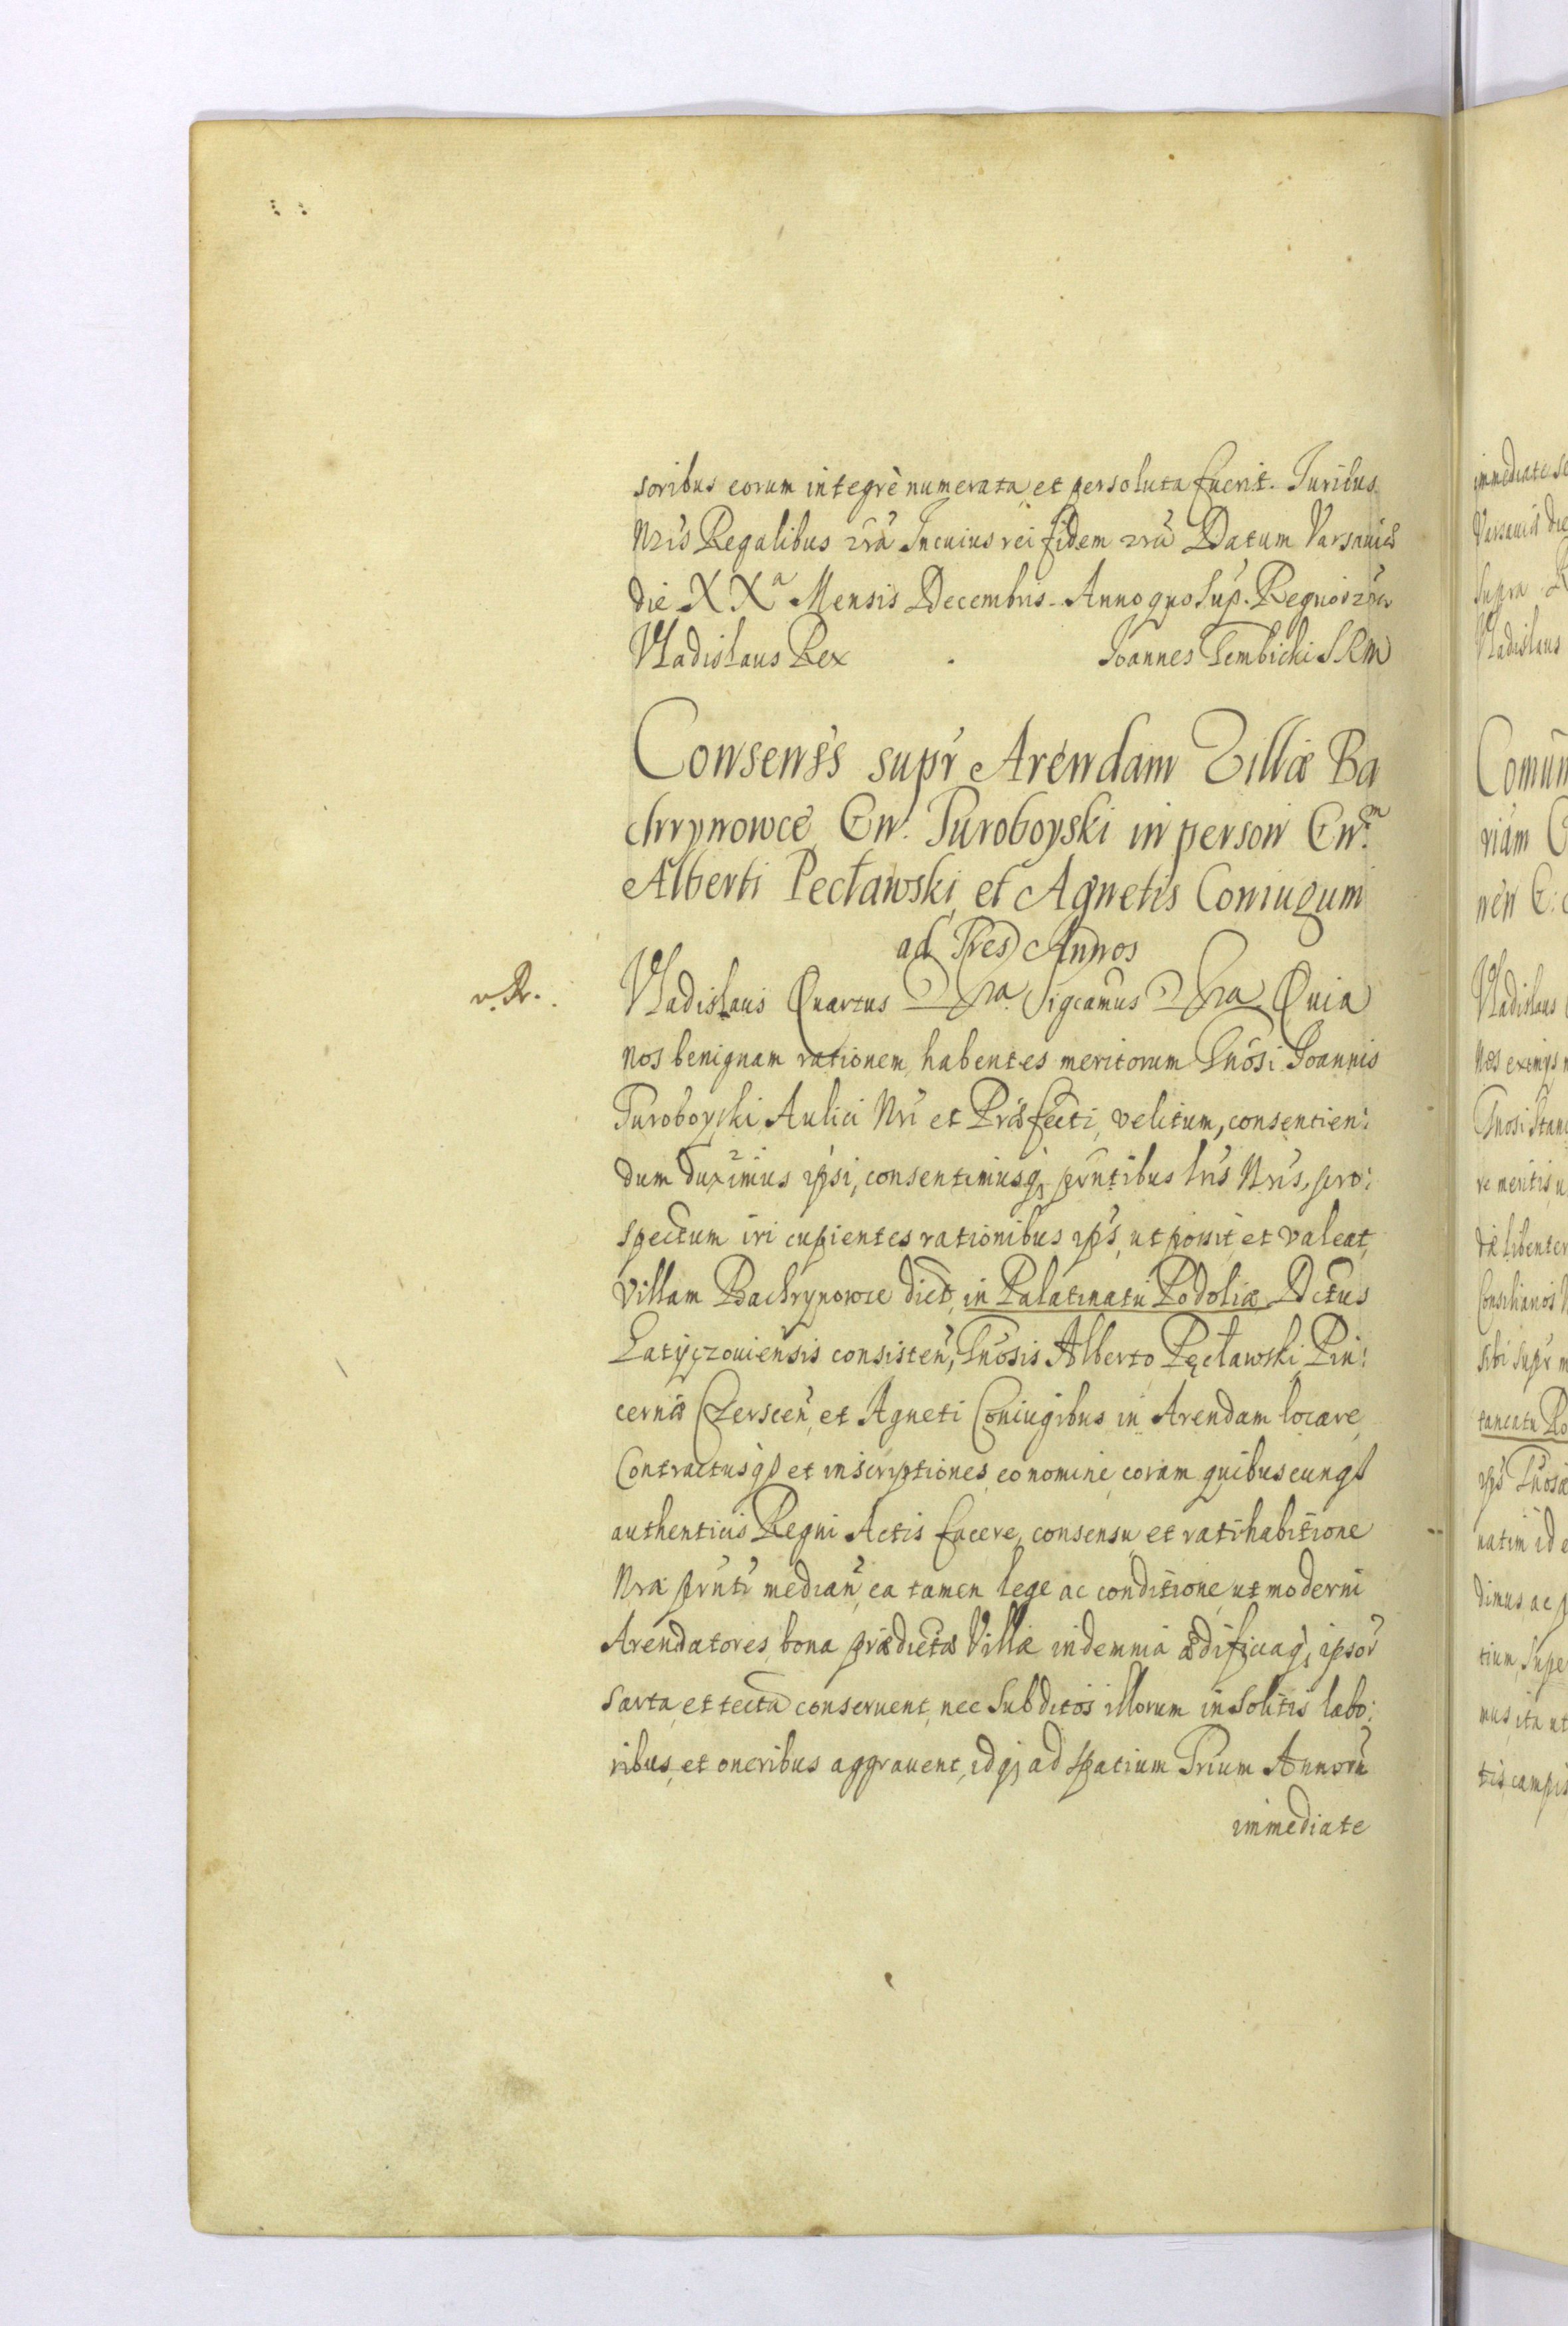 soribus eorum integrè numerata et persoluta fuerit. Juribus
Nris Regalibus Incuius rei fidem Datum Varsauiæ
die XXª Mensis Decembris Anno quo Sup. Regnor
Vladislaus Rex Joannes Gembicki SRM
Consenss supr Arendam Villæ Ba
chrynowce Gn. Turoboyski in person Gn.
Alberti Pecławski et Agnetis Coniugum
ad Tres Annos
v. R. Vladislaus Quartus Sigcamus Quia
nos benignam rationem habentes meritorum Gnosi Joannis
Turoboyski Aulici Nri et Præfecti velitum, consentien:
dum duximus ipsi, consentimusq; prntibus lris Nris, pro:
spectum iri cupientes rationibus ips, ut possit et valeat
villam Bachrynowce dict, in Palatinatu Podoliæ Dctus
Latyczouiensis consisten, Gnosis Alberto Pęcławski Pin:
cernæ Czerscen et Agneti Coniugibus in Arendam locare
Contractusq; et inscriptiones eo nomine coram quibuscunq;
authenticis Regni Actis facere, consensu et ratihabitione
Nra prnti median, ea tamen lege ac conditione ut moderni
Arendatores bona prædictæ Villæ indemnia ædificiaq; ipsor
sarta et tecta conseruent, nec Subditos illorum insolitis labo:
ribus et oneribus aggrauent, idq; ad spatium Trium Annorū
immediate
immediate
Varsauiæ die
Supra
Vladislaus
Comun
riam
nen G:
Vladislaus
Nos eximys
Gnosi Stan
re meritis
libenter
Consiliarios
Sibi Supr
tancatu
Gnosi
natim id
dimus ac
tium Supe
mus, ita ut
tis campis